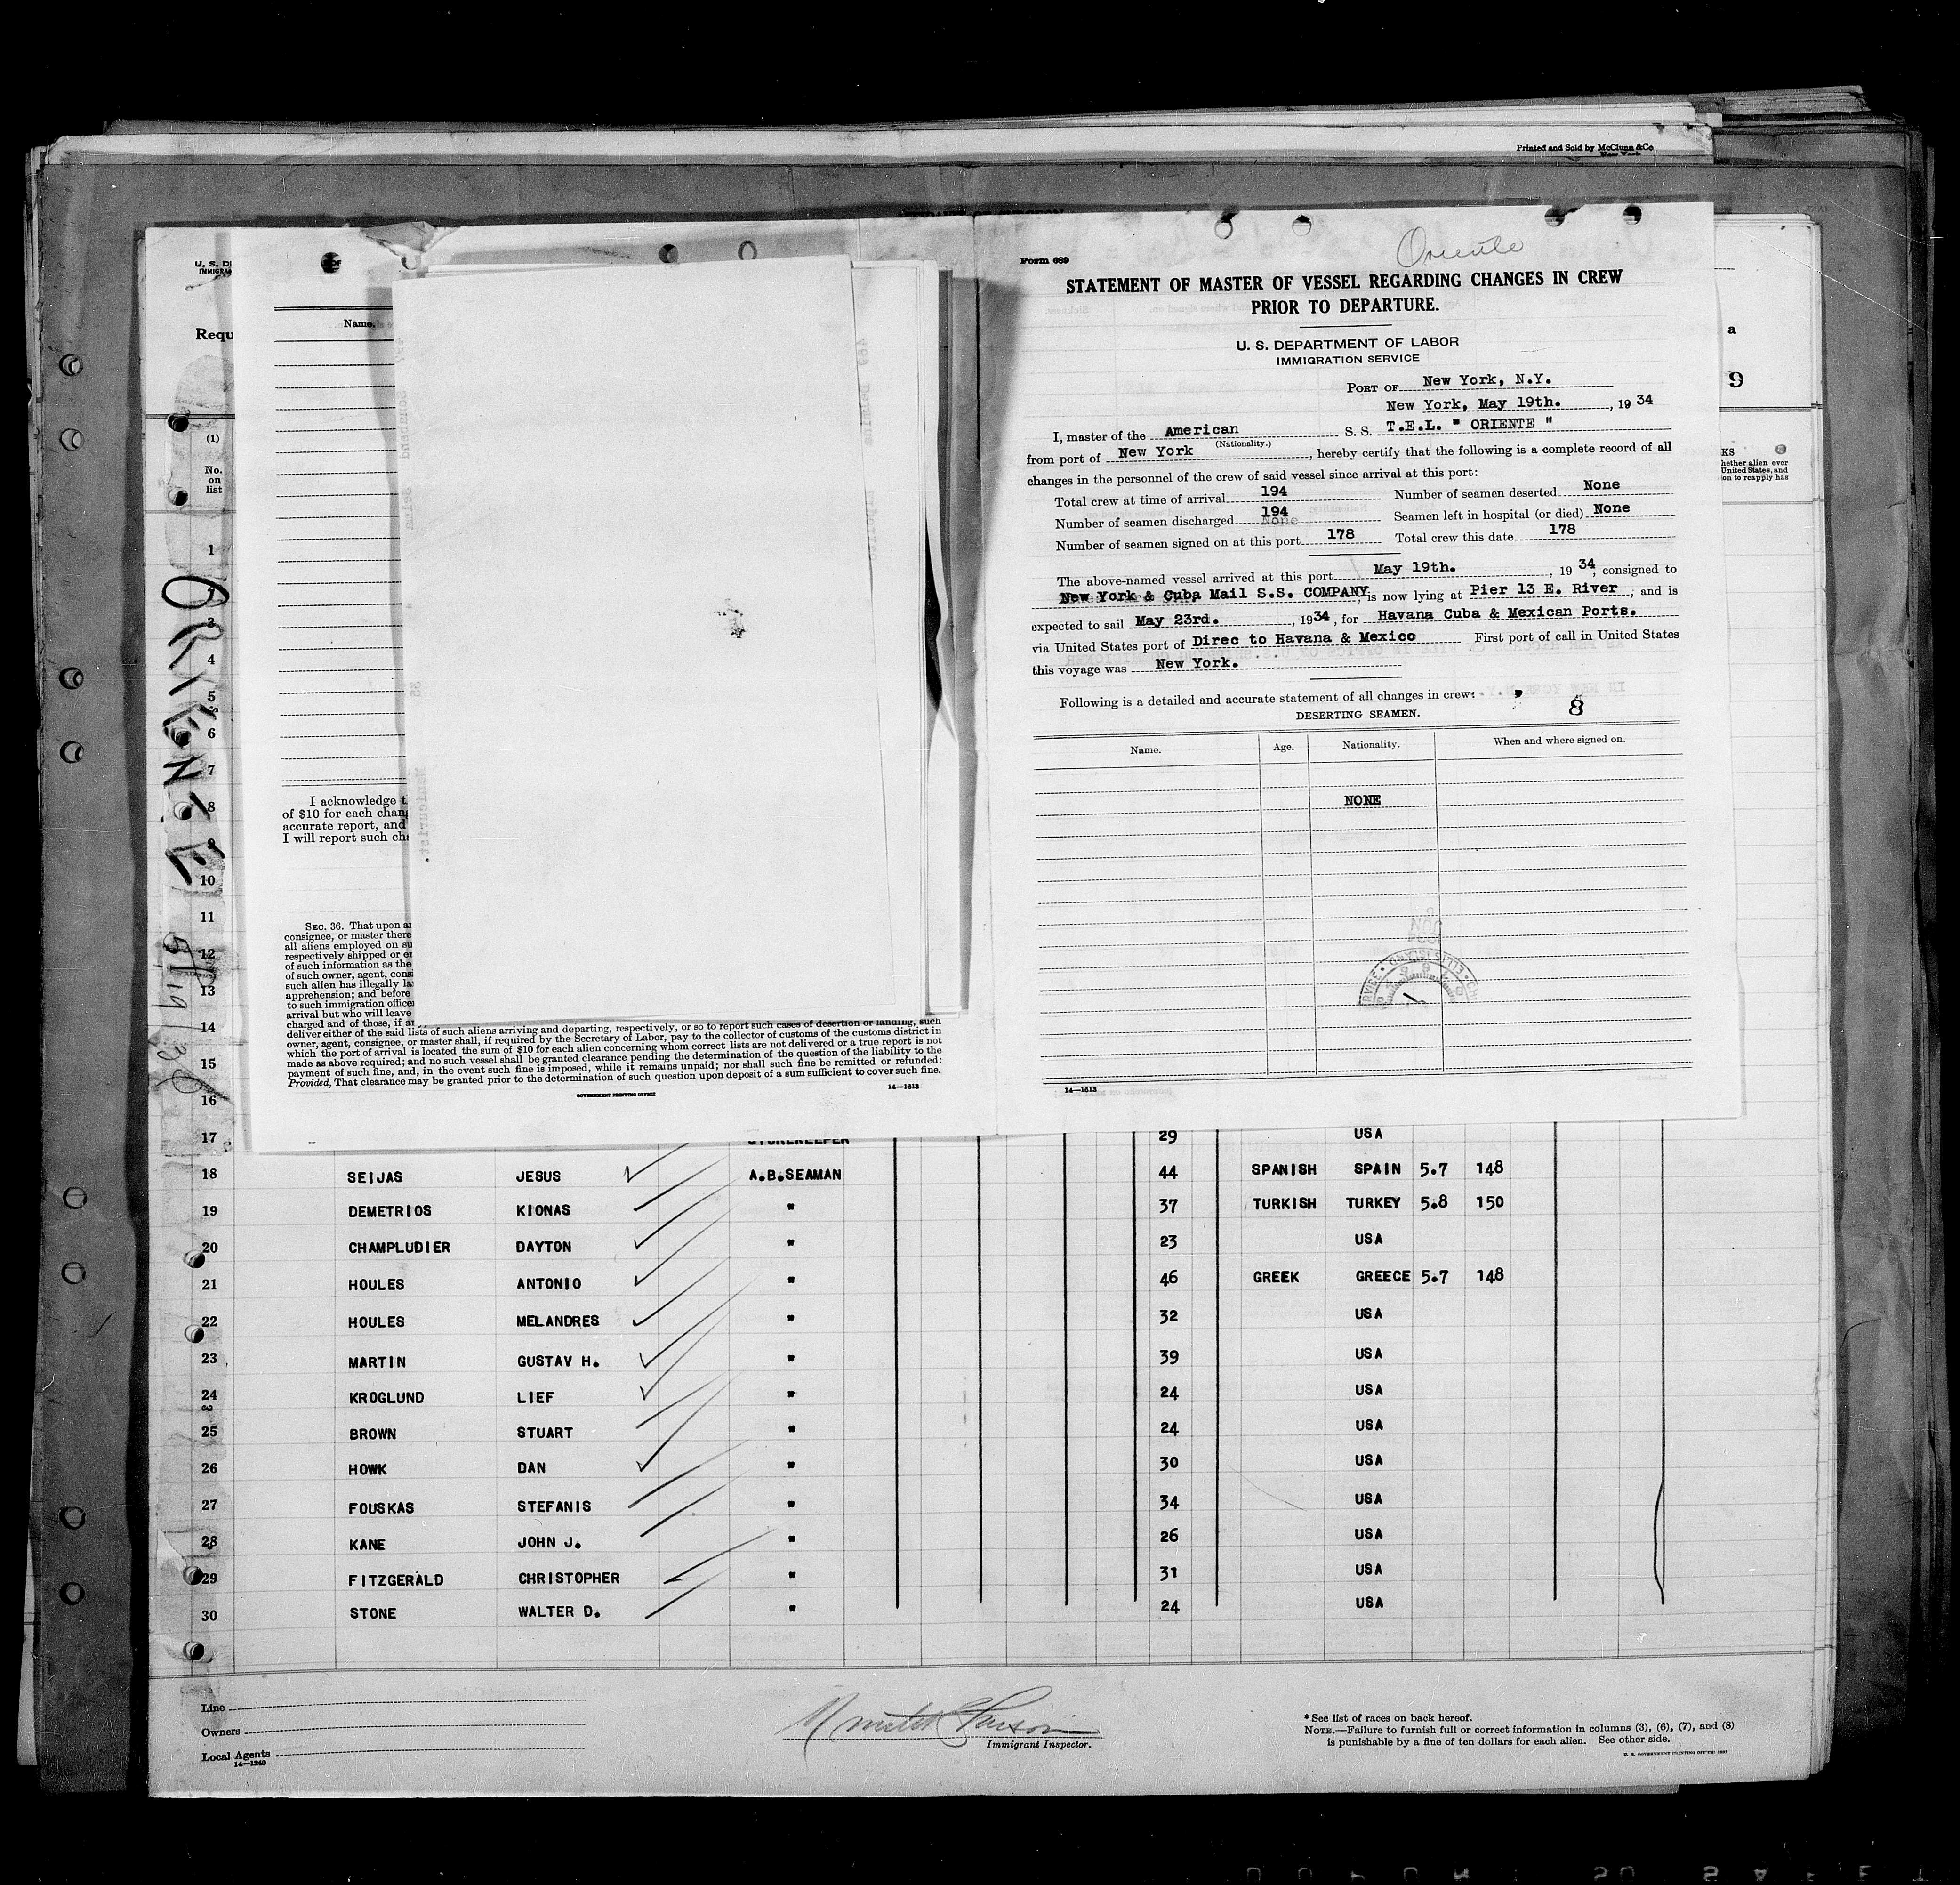 Printed and Sold by McClunn &Co
New York
Oriente
Form 689
STATEMENT OF MASTER OF VESSEL REGARDING CHANGES IN CREW
PRIOR TO DEPARTURE.
U. S. DEPARTMENT OF LABOR
IMMIGRATION SERVICE
PORT OF New York, N.Y.
New York, May 19th. , 19 34
I, master of the American S. S. T.E.L. " ORIENTE "
(Nationality.)
from port of New York , hereby certify that the following is a complete record of all
changes in the personnel of the crew of said vessel since arrival at this port:
Total crew at time of arrival 194 Number of seamen deserted None
Number of seamen discharged 194 None Seamen left in hospital (or died) None
Number of seamen signed on at this port 178 Total crew this date 178
The above-named vessel arrived at this port May 19th. , 19 34, consigned to
New York & Cuba Mail S.S. COMPANY, is now lying at Pier 13 E. River , and is
expected to sail May 23rd. , 19 34, for Havana Cuba & Mexican Ports.
via United States port of Direc to Havana & Mexico First port of call in United States
this voyage was New York.
Following is a detailed and accurate statement of all changes in crew:
8
DESERTING SEAMEN.
Name. Age. Nationality. When and where signed on.
NONE
14—1613
U. S. DE
IMMIGRA
OF
Requ
Name.
(1)
No.
on
list
a
9
KS
hether alien ever
United States, and
on to reapply has
ORIENTE 5/19/34
1
3
4
5
6
7
8
9
10
11
12
13
14
15
16
I acknowledge t
of $10 for each chan
accurate report, and
I will report such cha
SEC. 36. That upon ar
consignee, or master there
all aliens employed on su
respectively shipped or en
of such information as the
of such owner, agent, cons
such alien has illegally la
apprehension; and before
to such immigration office
arrival but who will leave
charged and of those, if any, or so to report such cases of desertion or landing, such
deliver either of the said lists of such aliens arriving and departing, respectively, or so to report such cases of desertion or landing, such
owner, agent, consignee, or master shall, if required by the Secretary of Labor, pay to the collector of customs of the customs district in
which the port of arrival is located the sum of $10 for each alien concerning whom correct lists are not delivered or a true report is not
made as above required; and no such vessel shall be granted clearance pending the determination of the question of the liability to the
payment of such fine, and, in the event such fine is imposed, while it remains unpaid; nor shall such fine be remitted or refunded:
Provided, That clearance may be granted prior to the determination of such question upon deposit of a sum sufficient to cover such fine.
GOVERNMENT PRINTING OFFICE 14—1613
17 STOREKEEPER 29 USA
18 SEIJAS JESUS A.B.SEAMAN 44 SPANISH SPAIN 5.7 148
19 DEMETRIOS KIONAS " 37 TURKISH TURKEY 5.8 150
20 CHAMPLUDIER DAYTON " 23 USA
21 HOULES ANTONIO " 46 GREEK GREECE 5.7 148
22 HOULES MELANDRES " 32 USA
23 MARTIN GUSTAV H. " 39 USA
24 KROGLUND LIEF " 24 USA
25 BROWN STUART " 24 USA
26 HOWK DAN " 30 USA
27 FOUSKAS STEFANIS " 34 USA
28 KANE JOHN J. " 26 USA
29 FITZGERALD CHRISTOPHER " 31 USA
30 STONE WALTER D. " 24 USA
Line
Owners
Local Agents
14—1240
Immigrant Inspector.
*See list of races on back hereof.
NOTE.—Failure to furnish full or correct information in columns (3), (6), (7), and (8)
is punishable by a fine of ten dollars for each alien. See other side.
U. S. GOVERNMENT PRINTING OFFICE